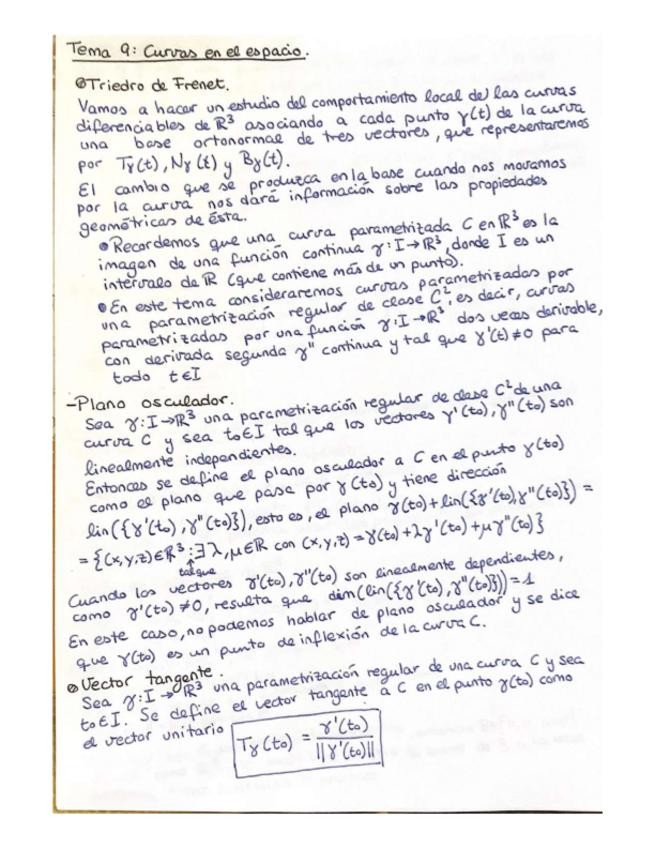 Tema 9: Curvas en el espacio.
Triedro de Frenet.
Vamos a hacer un estudio del comportamiento local de las curvas
diferenciables de ℝ³ asociando a cada punto γ(t) de la curva
una base ortonormal de tres vectores, que representaremos
por Tγ(t), Nγ(t) y Bγ(t).
El cambio que se produzca en la base cuando nos movamos
por la curva nos dará información sobre las propiedades
geométricas de ésta.
• Recordemos que una curva parametrizada C en ℝ³ es la
imagen de una función continua γ: I→ℝ³, donde I es un
intervalo de ℝ (que contiene más de un punto).
• En este tema consideraremos curvas parametrizadas por
una parametrización regular de clase C², es decir, curvas
parametrizadas por una función γ: I→ℝ³ dos veces derivable,
con derivada segunda γ'' continua y tal que γ'(t)≠0 para
todo t∈I
-Plano osculador.
Sea γ: I→ℝ³ una parametrización regular de clase C² de una
curva C y sea to∈I tal que los vectores γ'(to), γ''(to) son
linealmente independientes.
Entonces se define el plano osculador a C en el punto γ(to)
como el plano que pasa por γ(to) y tiene dirección
lin({γ'(to), γ''(to)}), esto es, el plano γ(to)+lin({γ'(to), γ''(to)}) =
= {(x,y,z)∈ℝ³: ∃λ,μ∈ℝ con (x,y,z)=γ(to)+λγ'(to)+μγ''(to)}
tal que
Cuando los vectores γ'(to), γ''(to) son linealmente dependientes,
como γ'(to)≠0, resulta que dim(lin({γ'(to), γ''(to)}))=1
En este caso, no podemos hablar de plano osculador y se dice
que γ(to) es un punto de inflexión de la curva C.
Vector tangente.
Sea γ: I→ℝ³ una parametrización regular de una curva C y sea
to∈I. Se define el vector tangente a C en el punto γ(to) como
el vector unitario Tγ(to) = γ'(to) / ||γ'(to)||